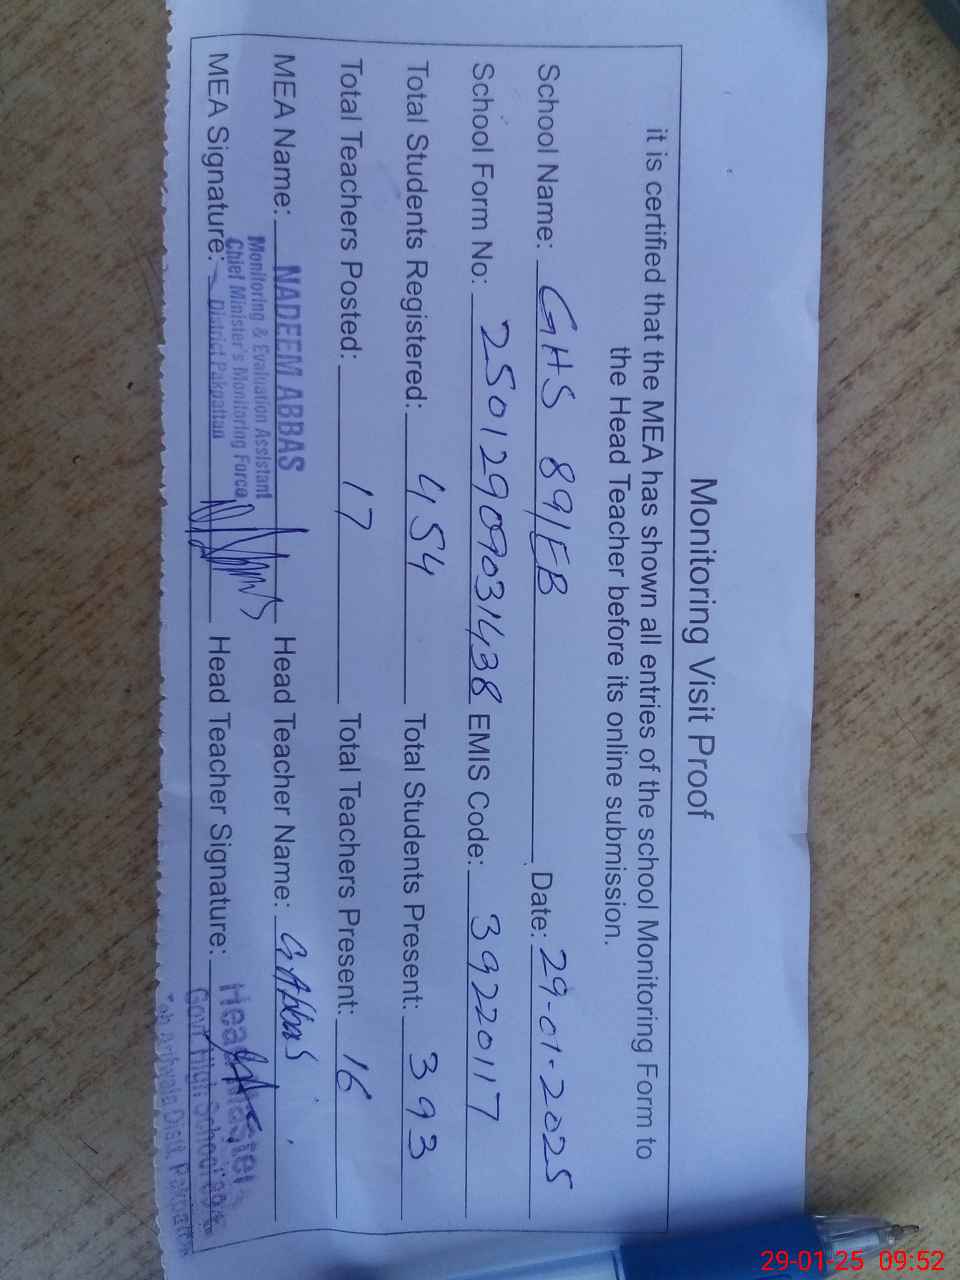 Monitoring Visit Proof
it is certified that the MEA has shown all entries of the school Monitoring Form to
the Head Teacher before its online submission.
School Name: GHS 89/EB Date: 29-01-2025
School Form No: 25012909031438 EMIS Code: 39220117
Total Students Registered: 454 Total Students Present: 393
Total Teachers Posted: 17 Total Teachers Present: 16
MEA Name: NADEEM ABBAS Head Teacher Name: G Abbas
Monitoring & Evaluation Assistant
Chief Minister's Monitoring Force
MEA Signature: District Pakpattan Head Teacher Signature: Headmaster
Govt High School
29-01-25 09:52